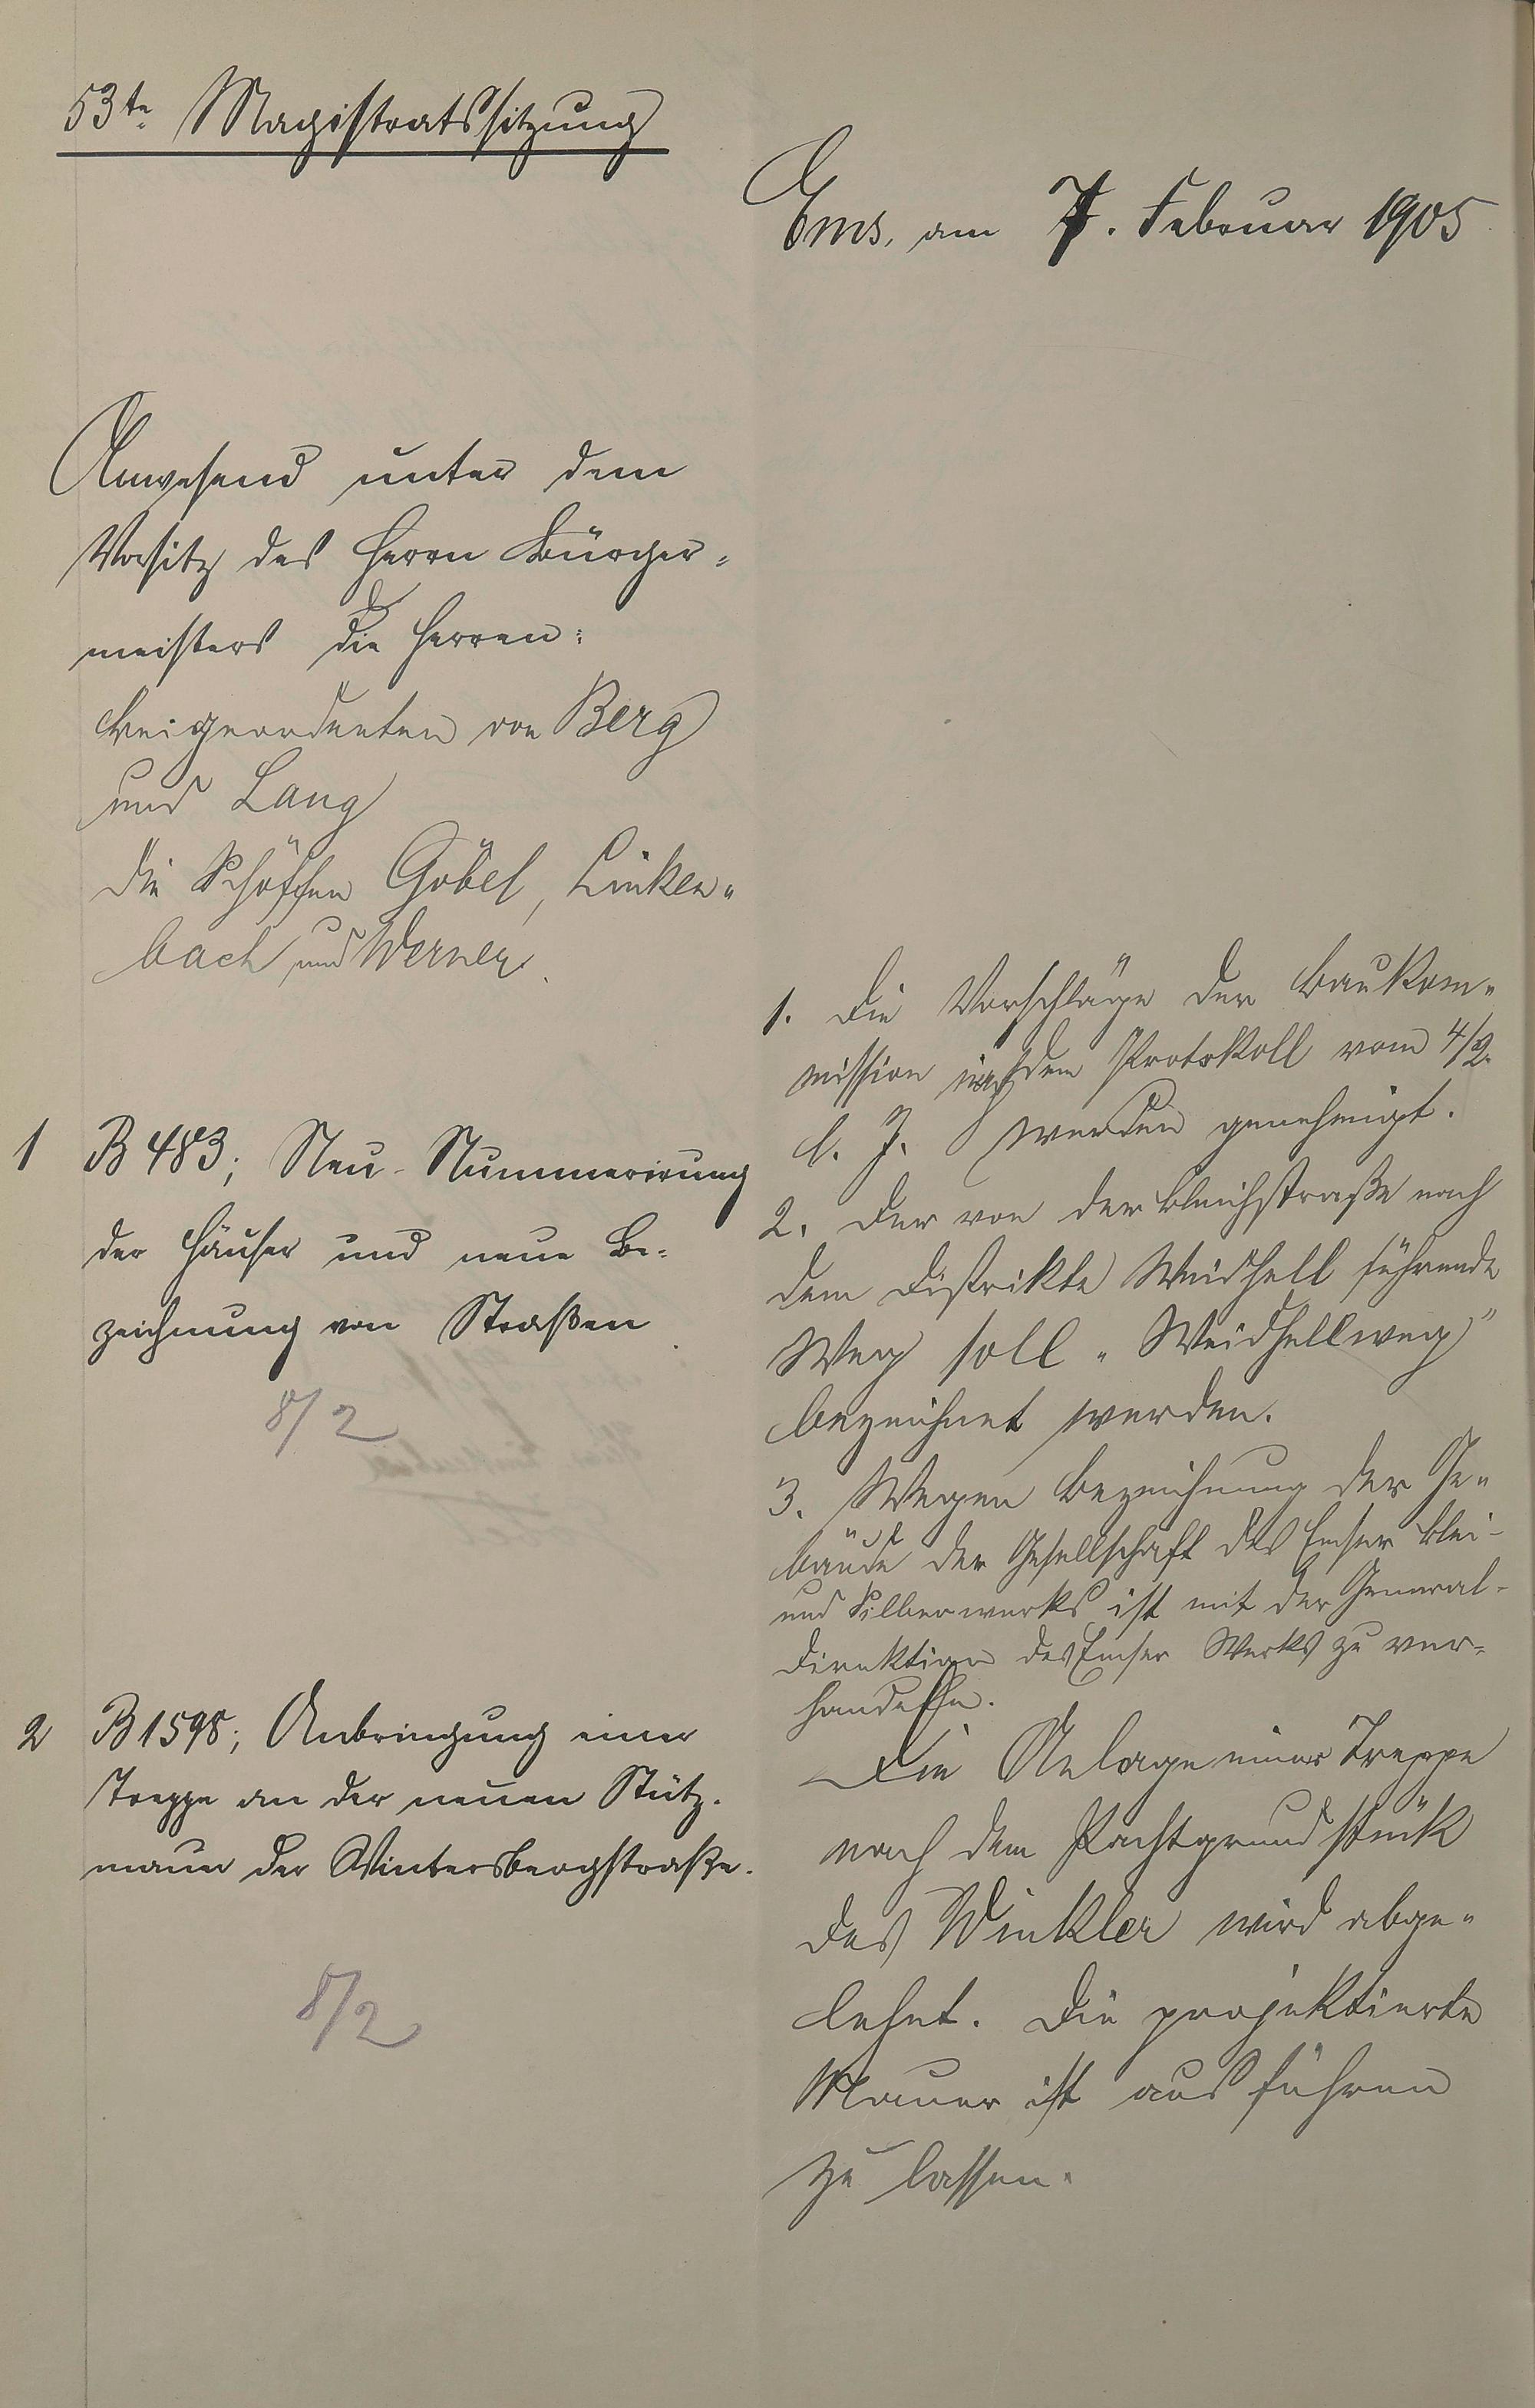 53te Magistratssitzung
Ems, am 7. Februar 1905
Anwesend unter dem
Vorsitz des Herrn Bürger-
meisters die Herren:
Beigeordneten von Berg
und Lang
die Schöffen Göbel, Linken-
bach und Werner.
1 B 483; Neu-Nummerirung
der Häuser und neue Be-
zeichnung von Straßen.
8/2
1. Die Vorschläge der Baukom-
mission nach dem Protokoll vom 4/2.
l. J. werden genehmigt.
2. Der von der Bleichstraße nach
dem Distrikte Weidhell führende
Weg soll „Weidhellweg"
bezeichnet werden.
3. Wegen Bezeichnung der Ge-
bäude der Gesellschaft des Emser Blei-
und Silberwerks ist mit der General-
direktion des Emser Werks zu ver-
handeln.
2 B 1598; Anbringung einer
Treppe an der neuen Stütz-
mauer der Wintersbergstraße.
8/2
Die Anlage einer Treppe
nach dem Pachtgrundstück
des Winkler wird abge-
lehnt. Die projektierte
Mauer ist ausführen
zu lassen.